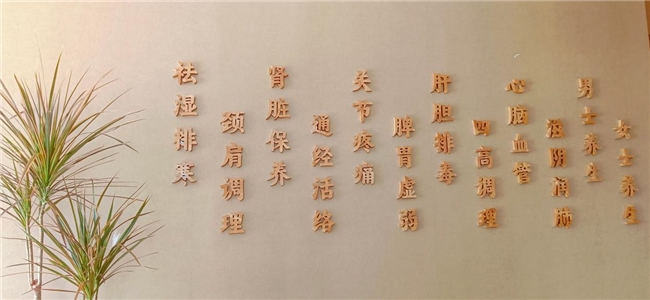 祛湿排寒
颈肩调理
肾脏保养
通经活络
关节疼痛
脾胃虚弱
肝胆排毒
四高调理
心脑血管
滋阴润肺
男士养生
女士养生